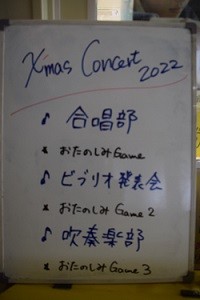 X'mas Concert 2022
♪ 合唱部
* おたのしみGame
♪ ビブリオ発表会
* おたのしみGame 2
♪ 吹奏楽部
* おたのしみGame 3